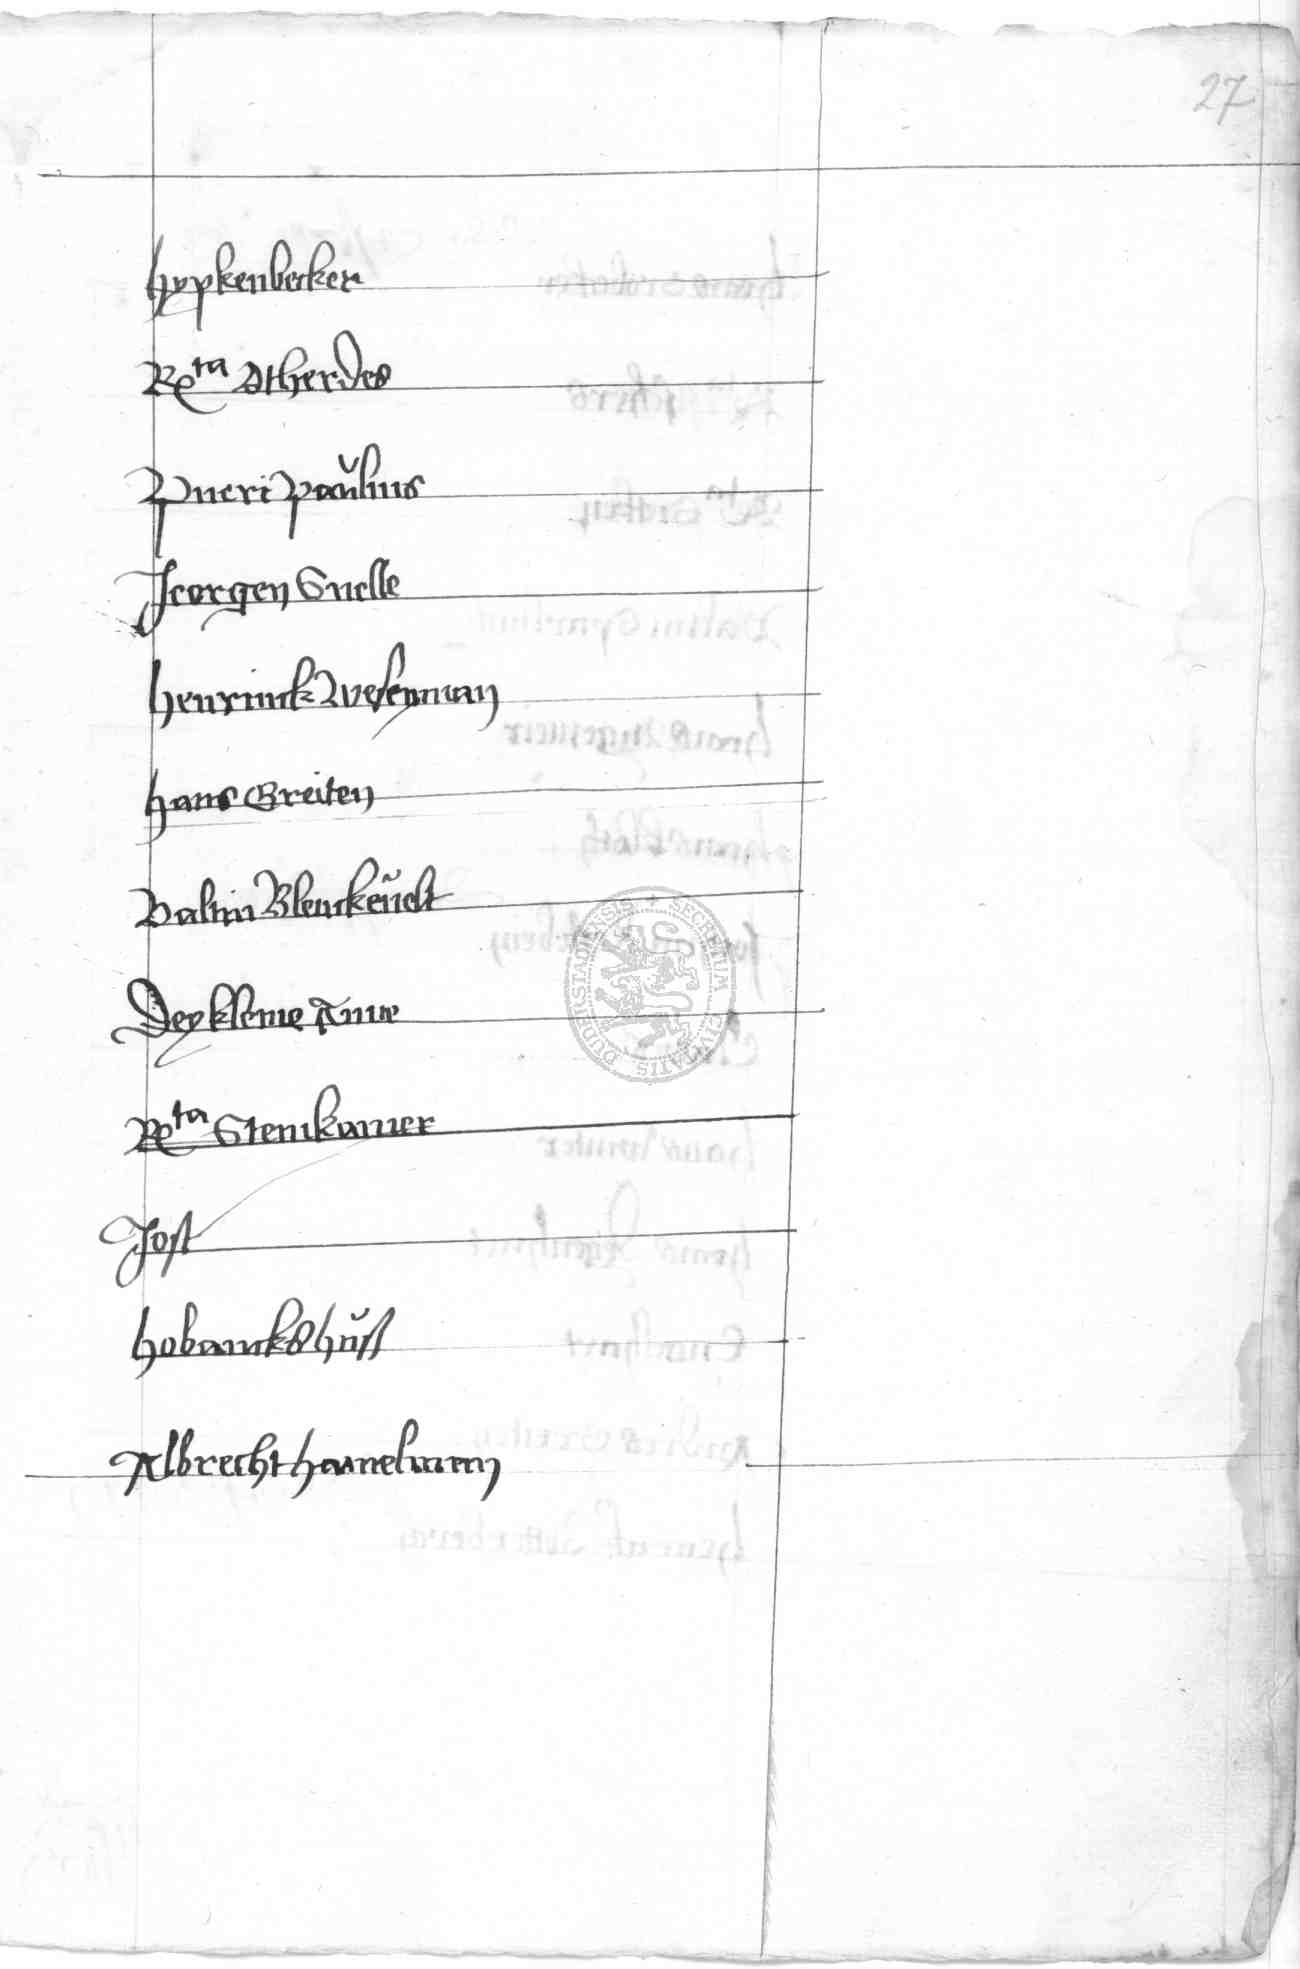 27
Hypkenbecker
Re^ta Otherdes
Pueri Paŭlius
Jeorgen Snelle
Henrinck Weseman
Hans Greiten
Valtin Blenckeñelt
Dey kleine Anne
Re^ta Steinkamer
Jost
Hobancks hŭss
Albrecht Hannelman
SECRETUM CIVITATIS DUDERSTADIENSIS